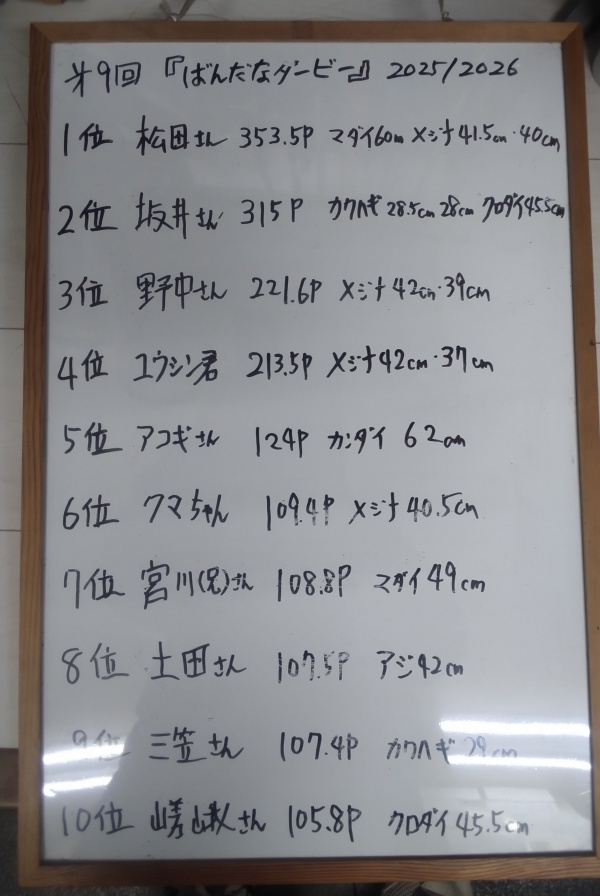 第9回 『ばんだなダービー』 2025/2026
1位 松田さん 353.5P マダイ60cm メジナ41.5cm・40cm
2位 坂井さん 315P カワハギ28.5cm 28cm クロダイ45.5cm
3位 野中さん 221.6P メジナ42cm・39cm
4位 ユウシン君 213.5P メジナ42cm・37cm
5位 アコギさん 124P カンダイ 62cm
6位 クマちゃん 109.4P メジナ40.5cm
7位 宮川(兄)さん 108.8P マダイ49cm
8位 土田さん 107.5P アジ42cm
9位 三笠さん 107.4P カワハギ29cm
10位 さん 105.8P クロダイ45.5cm